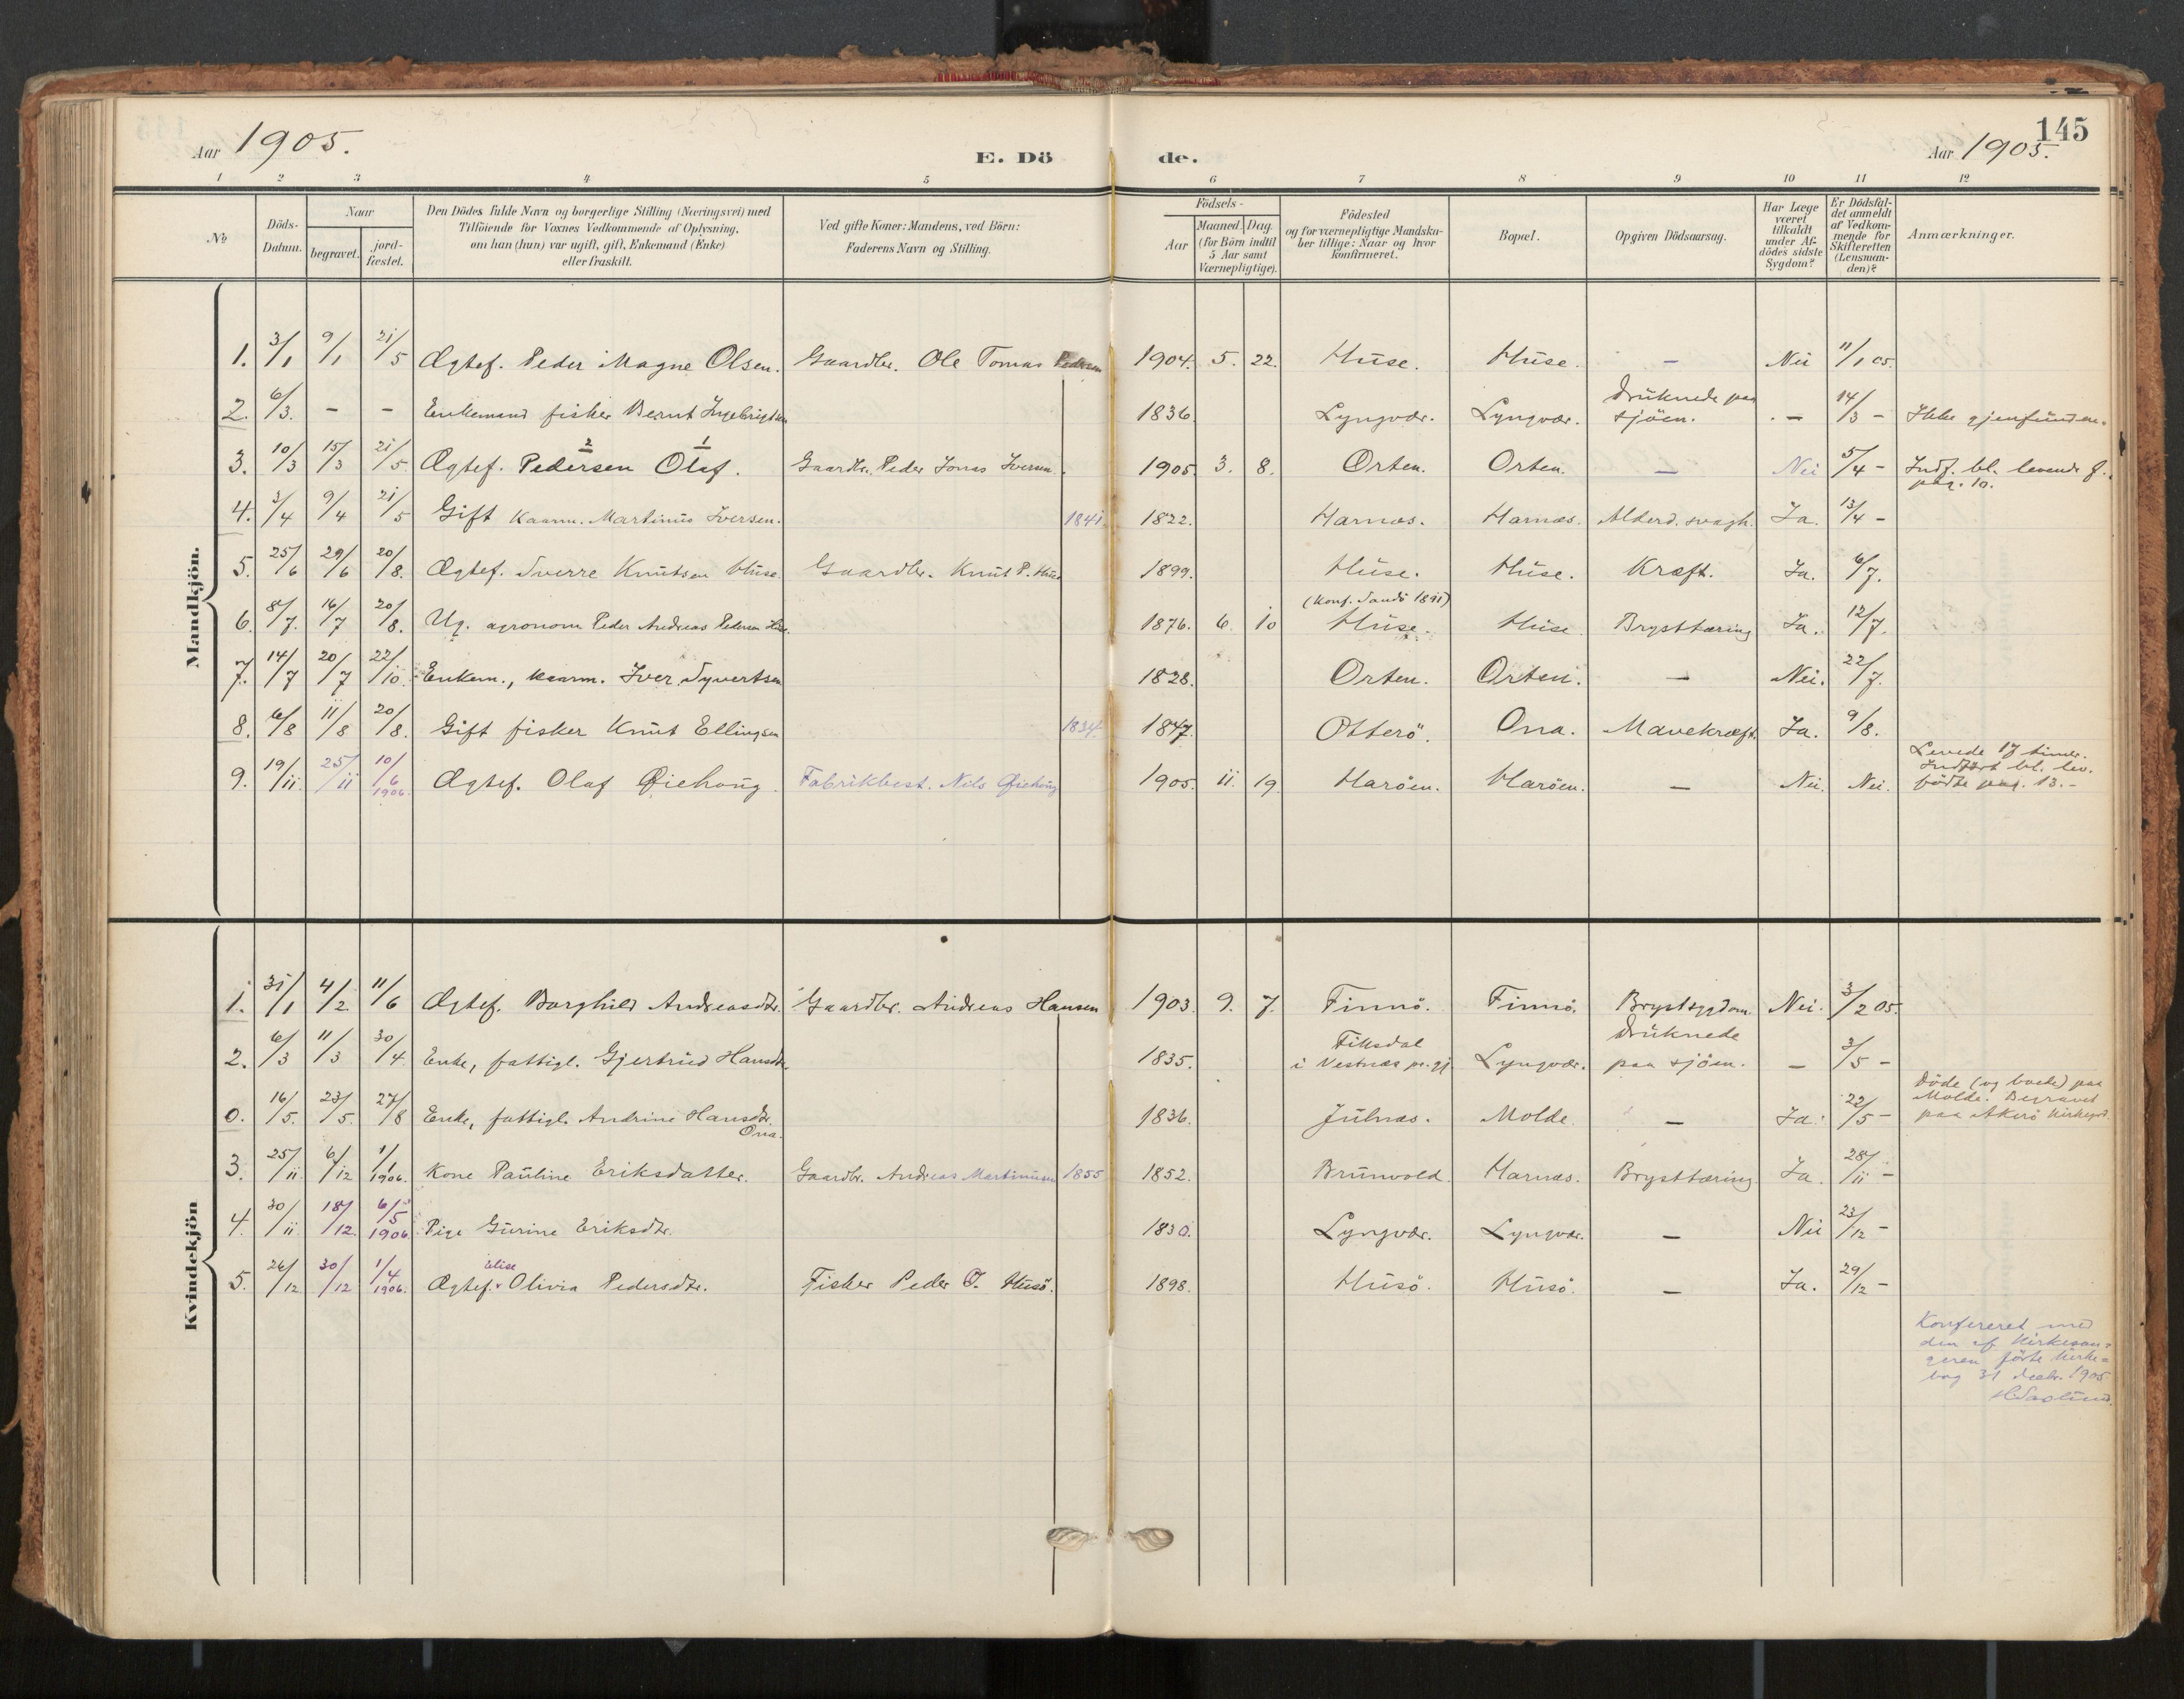 145
Aar 1905.
E. Dö de.
Aar 1905.
1 2 3 4 5 6 7 8 9 10 11 12
No
Döds-Datum.
Naar
begravet.
jord-fæstet.
Den Dödes fulde Navn og borgerlige Stilling (Næringsvei) med
Tilföiende for Voxnes Vedkommende af Oplysning,
om han (hun) var ugift, gift, Enkemand (Enke)
eller fraskilt.
Ved gifte Koner: Mandens, ved Börn:
Faderens Navn og Stilling.
Födsels-
Aar
Maaned. Dag.
(for Börn indtil
5 Aar samt
Værnepligtige).
Födested
og for værnepligtige Mandsku-
ber tillige: Naar og hvor
konfirmeret.
Bopæl.
Opgiven Dödsaarsag.
Har Læge
været
tilkaldt
under Af-
dödes sidste
Sygdom?
Er Dödsfal-
det anmeldt
af Vedkom-
mende for
Skifteretten
(Lensman-
den)?
Anmærkninger.
Mandkjön.
1. 3/1 9/1 21/5 Ægtef. Peder Magne Olsen. Gaardbr. Ole Tomas Pedersen 1904. 5. 22. Huse. Huse. — Nei 11/1 05.
2. 6/3. – – Enkemand fisker Bernt Ingebrigtsen 1836. Lyngvær. Lyngvær. Druknede paa sjöen. . — 14/3 – Ikke gjenfunden.
3. 10/3 15/3 21/5. Ægtef. Pedersen 2 Olaf 1. Gaardbr. Peder Jonas Iversen. 1905. 3. 8. Orten. Orten. — Nei 5/4 – Indf. bl. levende f. pag. 10.
4. 3/4 9/4 21/5 Gift kaarm. Martinus Iversen. 1841. 1822. Harnæs. Harnæs. Alderd. svagh. Ja. 13/4 –
5. 25/6 29/6 20/8. Ægtef. Sverre Knutsen Huse. Gaardbr. Knut P. Huse 1899. Huse. Huse. Kræft. Ja. 6/7.
6. 8/7. 16/7 20/8. Ug. agronom Peder Andreas Pedersen Huse. 1876. 6. 10 (Konf. Sandö 1891) Huse. Huse. Brysttæring Ja. 12/7.
7. 14/7 20/7 22/10. Enkem., kaarm. Iver Syvertsen 1828. Orten. Orten. — Nei. 22/7.
8. 6/8 11/8 20/8. Gift fisker Knut Ellingsen 1834. 1847. Otterö. Ona. Mavekræft. Ja. 9/8.
9. 19/11. 25/11 10/6 1906. Ægtef. Olaf Giehaug. Fabrikbest. Nils Giehaug 1905. 11. 19. Haröen. Haröen. — Nei. Nei. Levede 17 timer. Indfört bl. lev. födte pag. 13. –
Kvindekjön
1. 31/1 4/2. 11/6 Ægtef. Borghild Andreasdtr. Gaardbr. Andreas Hansen 1903. 9. 7. Finnö. Finnö. Brystsygdom. Nei. 3/2 05.
2. 6/3 11/3 30/4 Enke, fattigl. Gjertrud Hansdtr. 1835. Fiksdal i Vestnæs pr.gj. Lyngvær. Druknede paa sjöen. — 3/5 –
0. 16/5. 23/5. 27/8 Enke, fattigl. Andrine Hansdtr. Ona. 1836. Julnæs. Molde. — Ja. 22/5 – Döde (og boede) paa Molde. Begravet paa Akerö Kirkegrd.
3. 25/11. 6/12 1/1 1906. Kone Pauline Eriksdatter. Gaardbr. Andreas Martinusen 1855 1852. Brunvold. Harnæs. Brysttæring Ja. 28/11 –
4. 30/11. 18/12. 6/5 1906. Pige Gurine Eriksdtr. 1830. Lyngvær. Lyngvær. — Nei 23/12 –
5. 26/12 30/12 1/4 1906. Ægtef. Elise Olivia Pedersdtr. Fisker Peder O. Husö. 1898. Husö. Husö. — Ja. 29/12 –
Konfereret med
den af Kirkesan-
geren förte Kirke-
bog 31 decbr. 1905